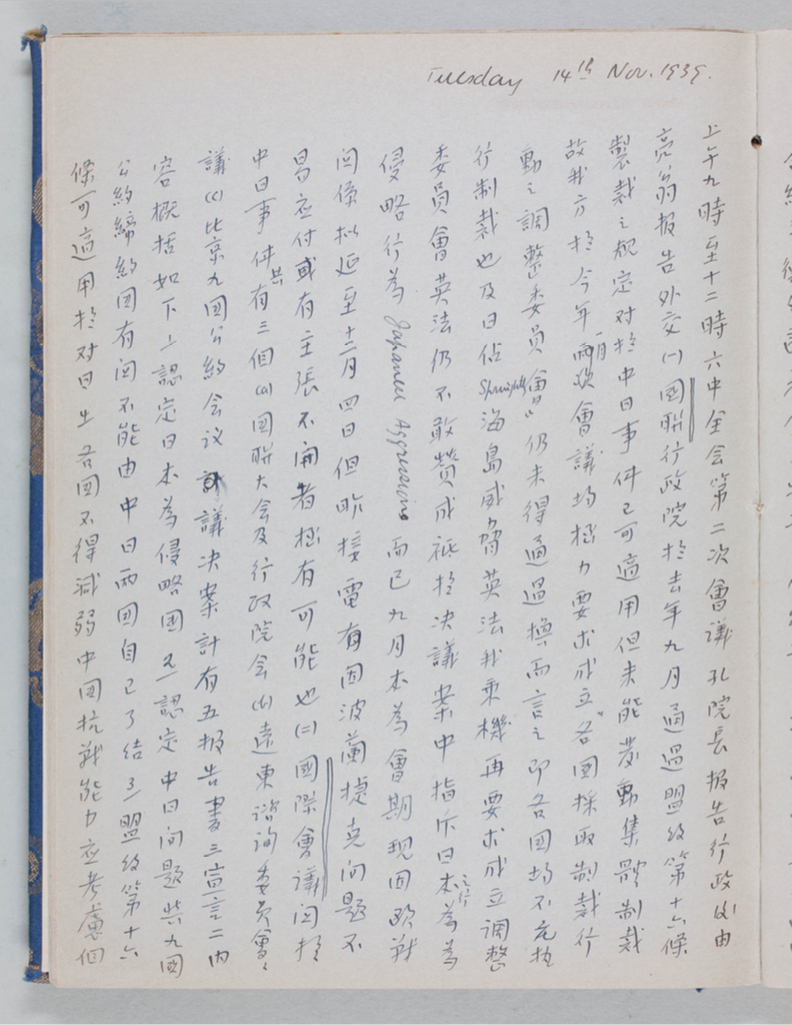 Tuesday 14th Nov. 1939.
上午九時至十二時六中全会第二次會議孔院長报告行政由
亮翁报告外交(一)國聯行政院扵去年九月通過盟约第十六條
製裁之規定对扵中日事件已可適用但未能发動集體制裁
故我方扵今年一月兩次會議均极力要求成立各國採取制裁行
動之調整委員會仍未得通過換而言之即各国均不允执
行制裁也及日佔 Spratly 海島威脅英法我乘機再要求成立調整
委員會英法仍不敢贊成祗扵決議案中指斥日本之行為為
侵略行為 Japanese Aggression 而已九月本為會期現因欧战
関係拟延至十二月四日但昨接電有因波蘭捷克问题不
易应付或有主張不開者极有可能也(二)國際會議関扵
中日事件共有三個(a)国聯大会及行政院会(b)遠東谘询委員會
議(c)比京九国公約会议 議決案計有五报告書三宣言二内
容概括如下 1 認定日本為侵略國 2 認定中日问题 九國
公約締約国有関不能由中日兩国自己了结 3 盟约第十六
條可適用扵对日 4 各国不得減弱中国抗战能力应考慮個